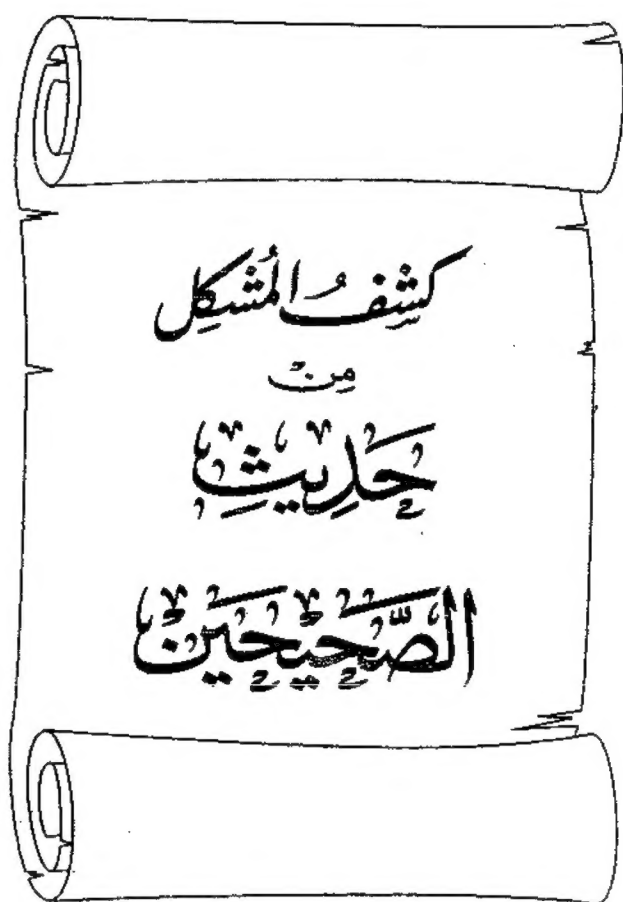 كشفُ المُشكِل
مِن
حَدِيثِ
الصَّحِيحَين